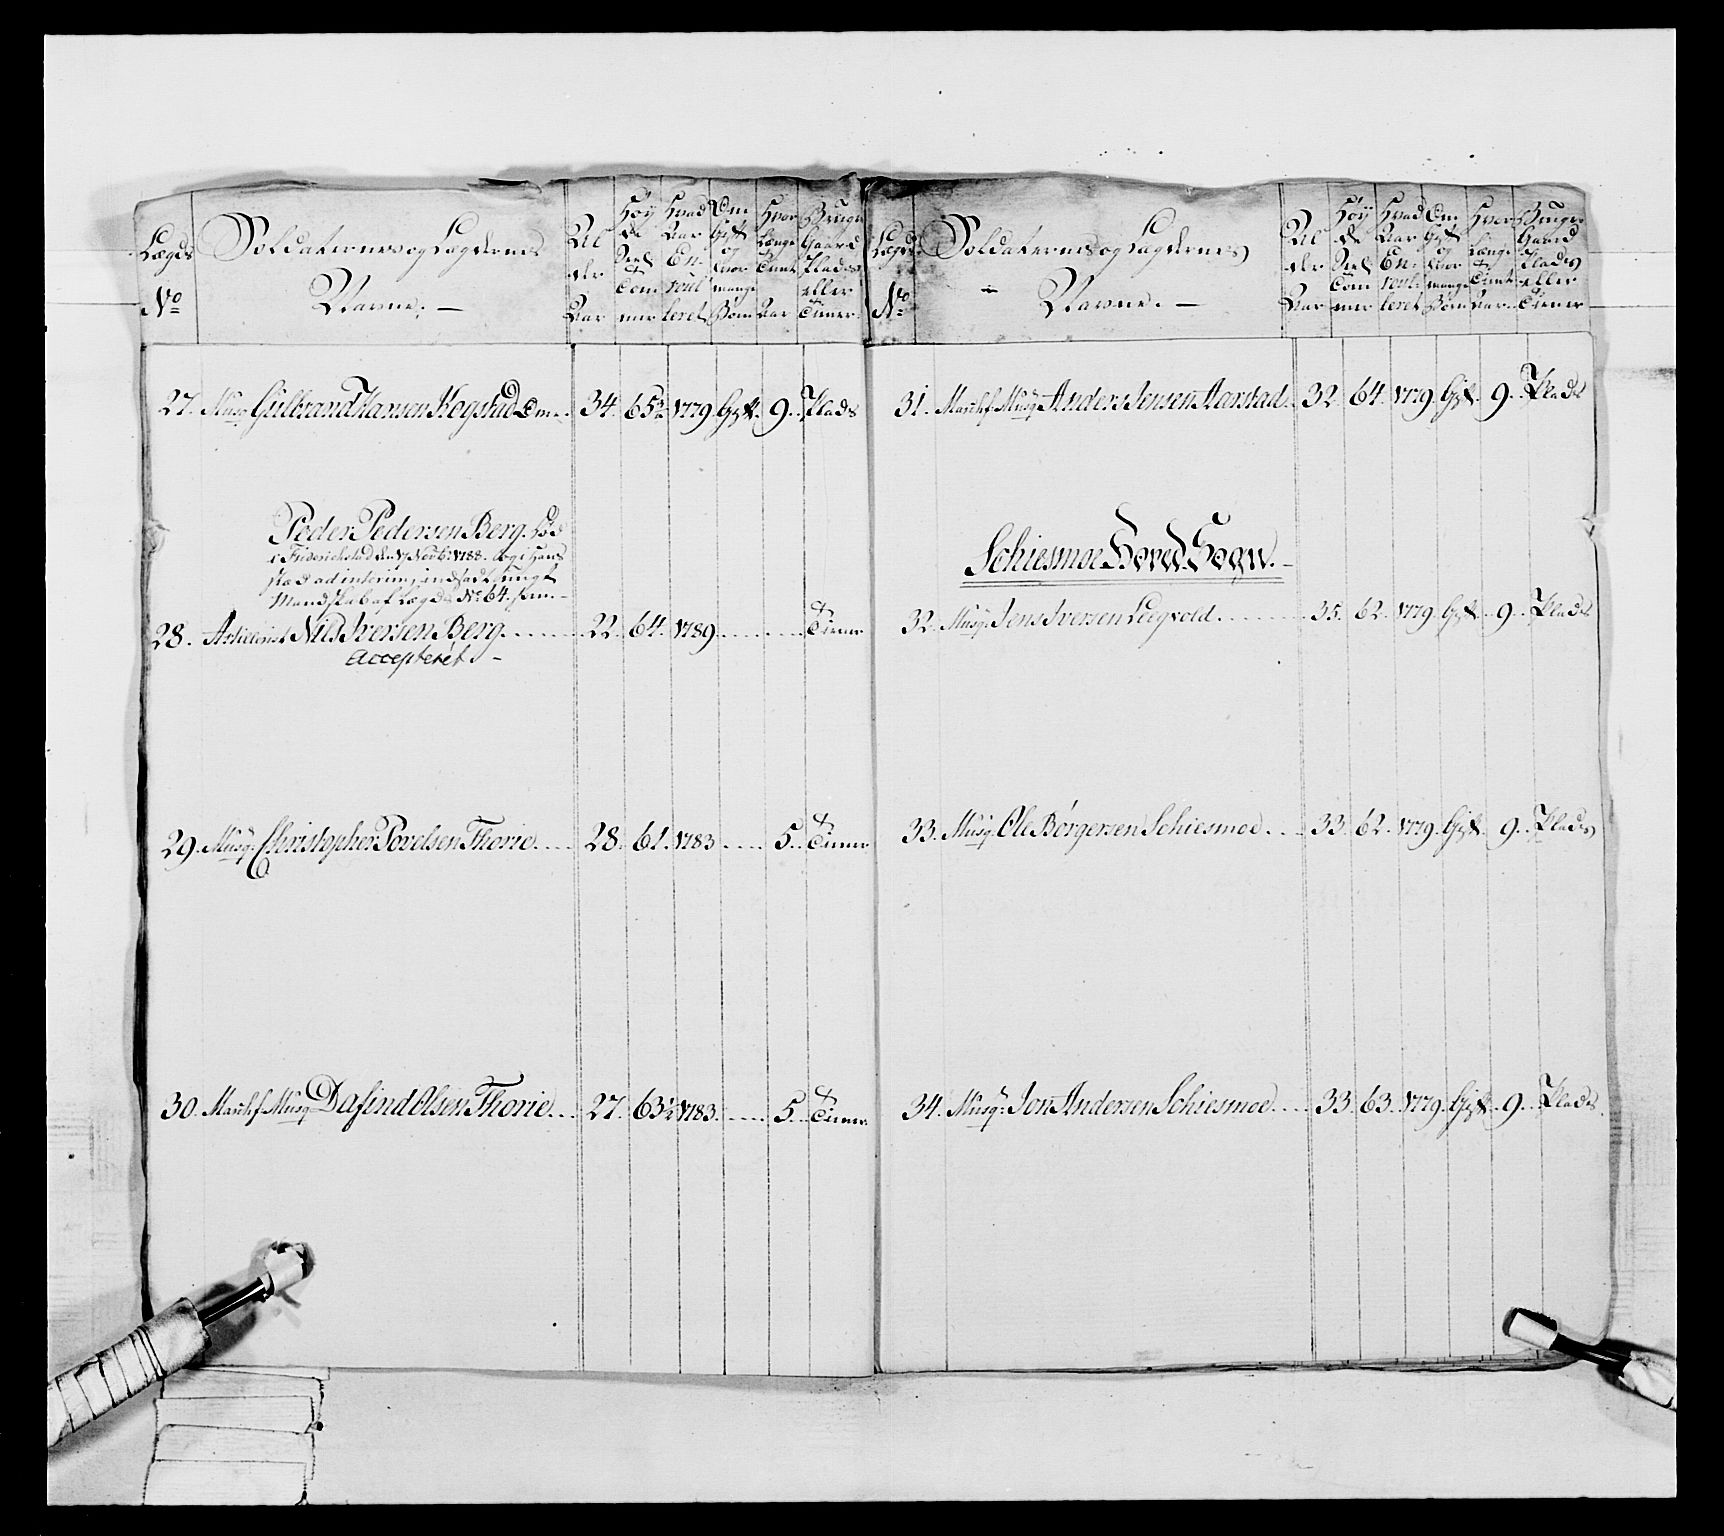 Lægds No
Soldaternes og Lægdernes Navne. —
Al der Aar
Høy de Seel Tom mer
Hvad Aar En roul leret
Om Gift og hvor mange Børn
Hvor længe tient Aar
Bruger Gaard Plads eller Tiener
27. Musq: Gulbrand Hansen Kogstad Em. 34. 65½ 1779. Gift. 9. Plads
Peder Pedersen Berg. Fød
i Friderichstad den 17 Novbr: 1788. og i Hans
stæd ad interim, indsadt ungt
Mandskab af Lægds No: 64.
28. Artilerist Nils Iversen Berg. 22. 64. 1789. Tiener
Accepteret. —
29. Musq: Christopher Povelsen Thorie. 28. 61. 1783. 5. Tiener
30. Musq: Dafind Olsen Thorie. 27. 63½ 1783. 5. Tiener
Lægds No
Soldaternes og Lægdernes Navne. —
Al der Aar
Høy de Seel Tom mer
Hvad Aar En roul leret
Om Gift og hvor mange Børn
Hvor længe tient Aar
Bruger Gaard Plads eller Tiener
31. Musq: Anders Jensen Aarstad. 32. 64. 1779. Gift. 9. Plads
Schiesmoe Hoved Sogn. —
32. Musq: Jens Iversen Leegvold. 35. 62. 1779. Gift. 9. Plads
33. Musq: Ole Børgersen Schiesmoe. 33. 62. 1779. Gift. 9. Plads
34. Musq: Jon Andersen Schiesmoe. 33. 63. 1779. Gift. 9. Plads